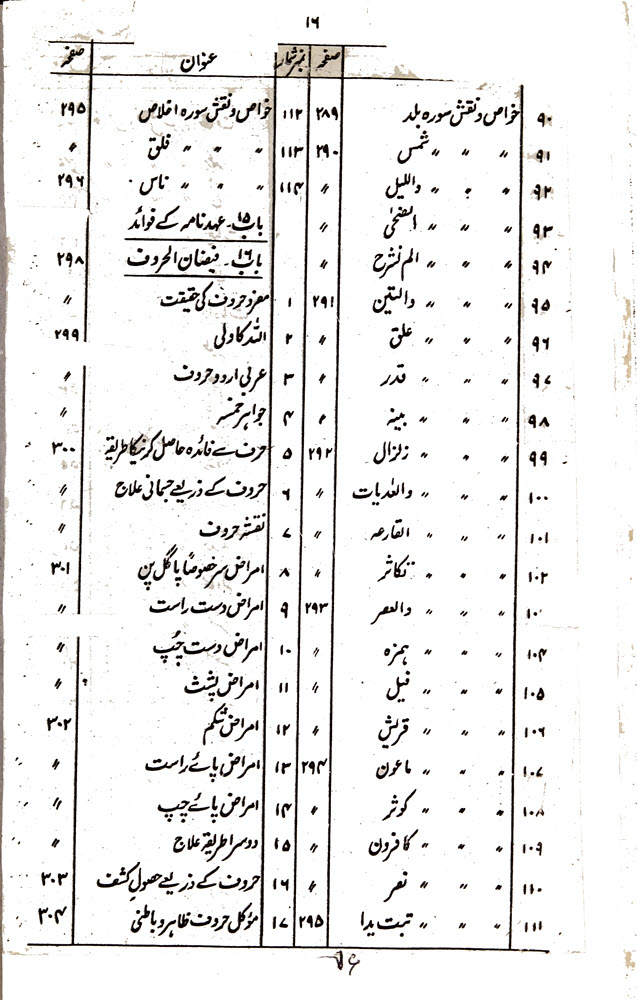 ۱۶
نمبر شمار عنوان صفحہ
۹۰ خواص و نقش سورہ بلد ۲۸۹
۹۱ 〃 〃 〃 شمس ۲۹۰
۹۲ 〃 〃 〃 واللیل 〃
۹۳ 〃 〃 〃 الضحیٰ 〃
۹۴ 〃 〃 〃 الم نشرح 〃
۹۵ 〃 〃 〃 والتین ۲۹۱
۹۶ 〃 〃 〃 علق 〃
۹۷ 〃 〃 〃 قدر 〃
۹۸ 〃 〃 〃 بینہ 〃
۹۹ 〃 〃 〃 زلزال ۲۹۲
۱۰۰ 〃 〃 〃 والعدیات 〃
۱۰۱ 〃 〃 〃 القارعہ 〃
۱۰۲ 〃 〃 〃 تکاثر 〃
۱۰ 〃 〃 〃 والعصر ۲۹۳
۱۰۴ 〃 〃 〃 ہمزہ 〃
۱۰۵ 〃 〃 〃 فیل 〃
۱۰۶ 〃 〃 〃 قریش 〃
۱۰۷ 〃 〃 〃 ماعون ۲۹۴
۱۰۸ 〃 〃 〃 کوثر 〃
۱۰۹ 〃 〃 〃 کافرون 〃
۱۱۰ 〃 〃 〃 نصر 〃
۱۱۱ 〃 〃 〃 تبت یدا ۲۹۵
۱۱۲ خواص و نقش سورہ اخلاص ۲۹۵
۱۱۳ 〃 〃 〃 فلق 〃
۱۱۴ 〃 〃 〃 ناس ۲۹۶
باب ۱۵۔ عہد نامہ کے فوائد
باب ۱۶۔ فیضان الحروف ۲۹۸
۱ مفرد حروف کی حقیقت 〃
۲ اللہ کا ولی ۲۹۹
۳ عربی اردو حروف 〃
۴ جواہر خمسہ 〃
۵ حرف سے فائدہ حاصل کرنیکا طریقہ ۳۰۰
۶ حروف کے ذریعے جسمانی علاج 〃
۷ نقشہ حروف 〃
۸ امراض سر خصوصاً پاگل پن ۳۰۱
۹ امراض دست راست 〃
۱۰ امراض دست چپ 〃
۱۱ امراض پشت 〃
۱۲ امراض شکم ۳۰۲
۱۳ امراض پائے راست 〃
۱۴ امراض پائے چپ 〃
۱۵ دوسرا طریقہ علاج 〃
۱۶ حروف کے ذریعے حصول کشف ۳۰۳
۱۷ مؤکل حروف ظاہر و باطنی ۳۰۴